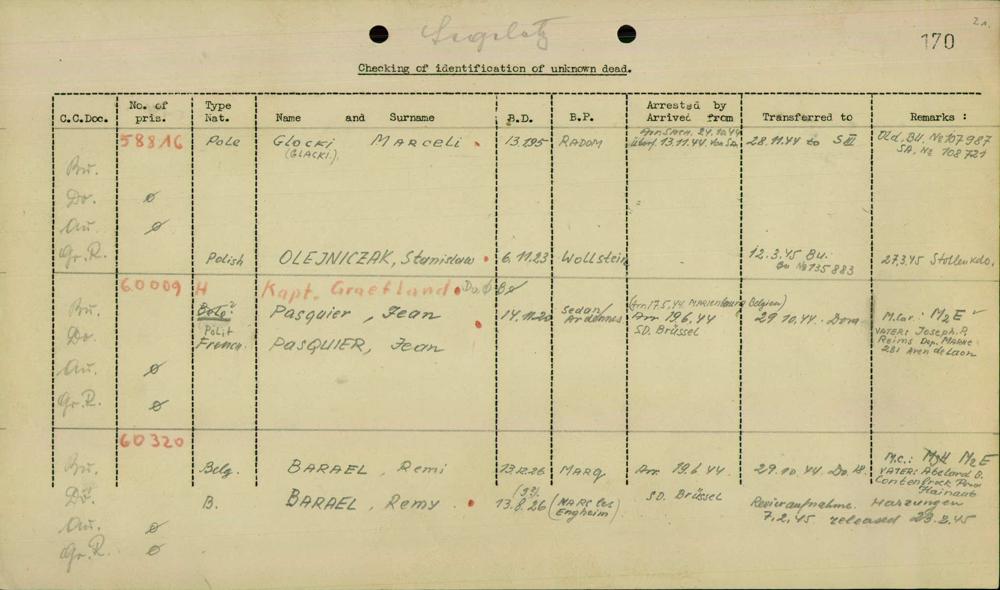 2a.
170
Checking of identification of unknown dead.
C.C.Doc. No. of pris. Type Nat. Name and Surname B.D. B.P. Arrested by Arrived from Transferred to Remarks :
58816 Pole GLOCKI MARCELI . 13.1.95 RADOM 24.10.44 28.11.44 to S III Old. BU. № 107987
(GLACKI). 13.11.44 von SA. SA. № 108721
Bu.
Do. ø
Au. ø
Gr.R. Polish OLEJNICZAK, Stanislaw . 6.11.23 Wollstein 12.3.45 Bu. 27.3.45
№ 135883
60009 H Kapt. Graefland . Do.
Bu. Pasquier, Jean 14.11.20 Sedan/Ardennes Arr. 19.6.44 29.10.44. Dora M.Car.: M2E
Do. Polit SD. Brüssel VATER: Joseph. P.
French. PASQUIER, Jean Reims Dep. MARNE
Au. ø 281 Aven de Laon
Gr.R. ø
60320
Bu. Belg. BARAEL, Remi 13.12.26 MARQ Arr 19.6.44 29.10.44. M.c.: M2E
VATER:
Do. B. BARAEL, Remy . 13.8.26 (MARC les Engheim) SD. Brüssel Revieraufnahme. Harzungen
7.2.45 released 23.2.45
Au. ø
Gr.R. ø